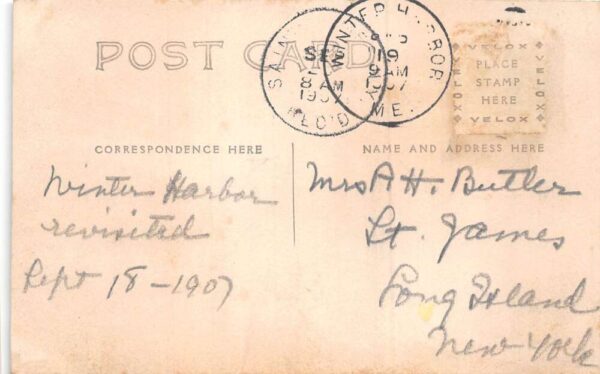 POST CARD
WINTER HARBOR
ME.
19
9 AM
1907
SAIN
8 AM
1907
REC'D
VELOX
PLACE
STAMP
HERE
VELOX
VELOX
VELOX
CORRESPONDENCE HERE
NAME AND ADDRESS HERE
Winter Harbor
revisited
Sept 18-1907
Mrs A H. Butler
St. James
Long Island
New York